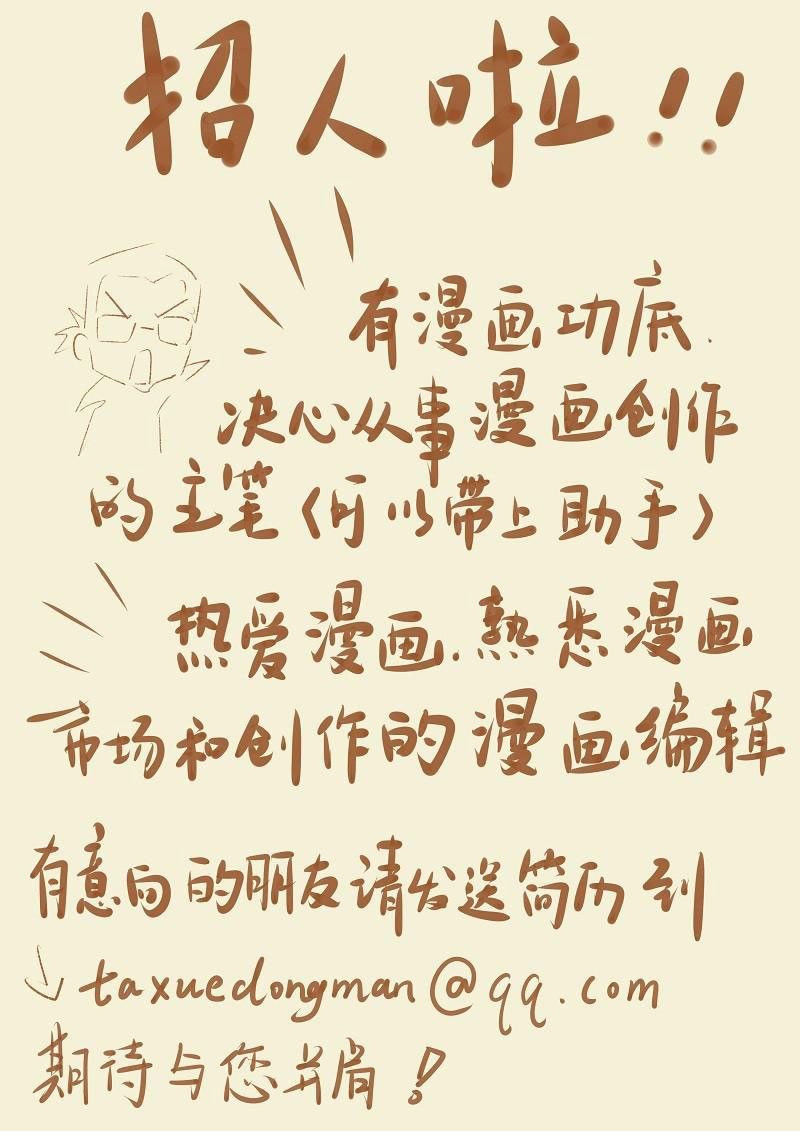 招人啦!!
有漫画功底.
决心从事漫画创作
的主笔(可以带上助手)
热爱漫画.熟悉漫画
市场和创作的漫画编辑
有意向的朋友请发送简历到
↓taxuedongman@qq.com
期待与您并肩!